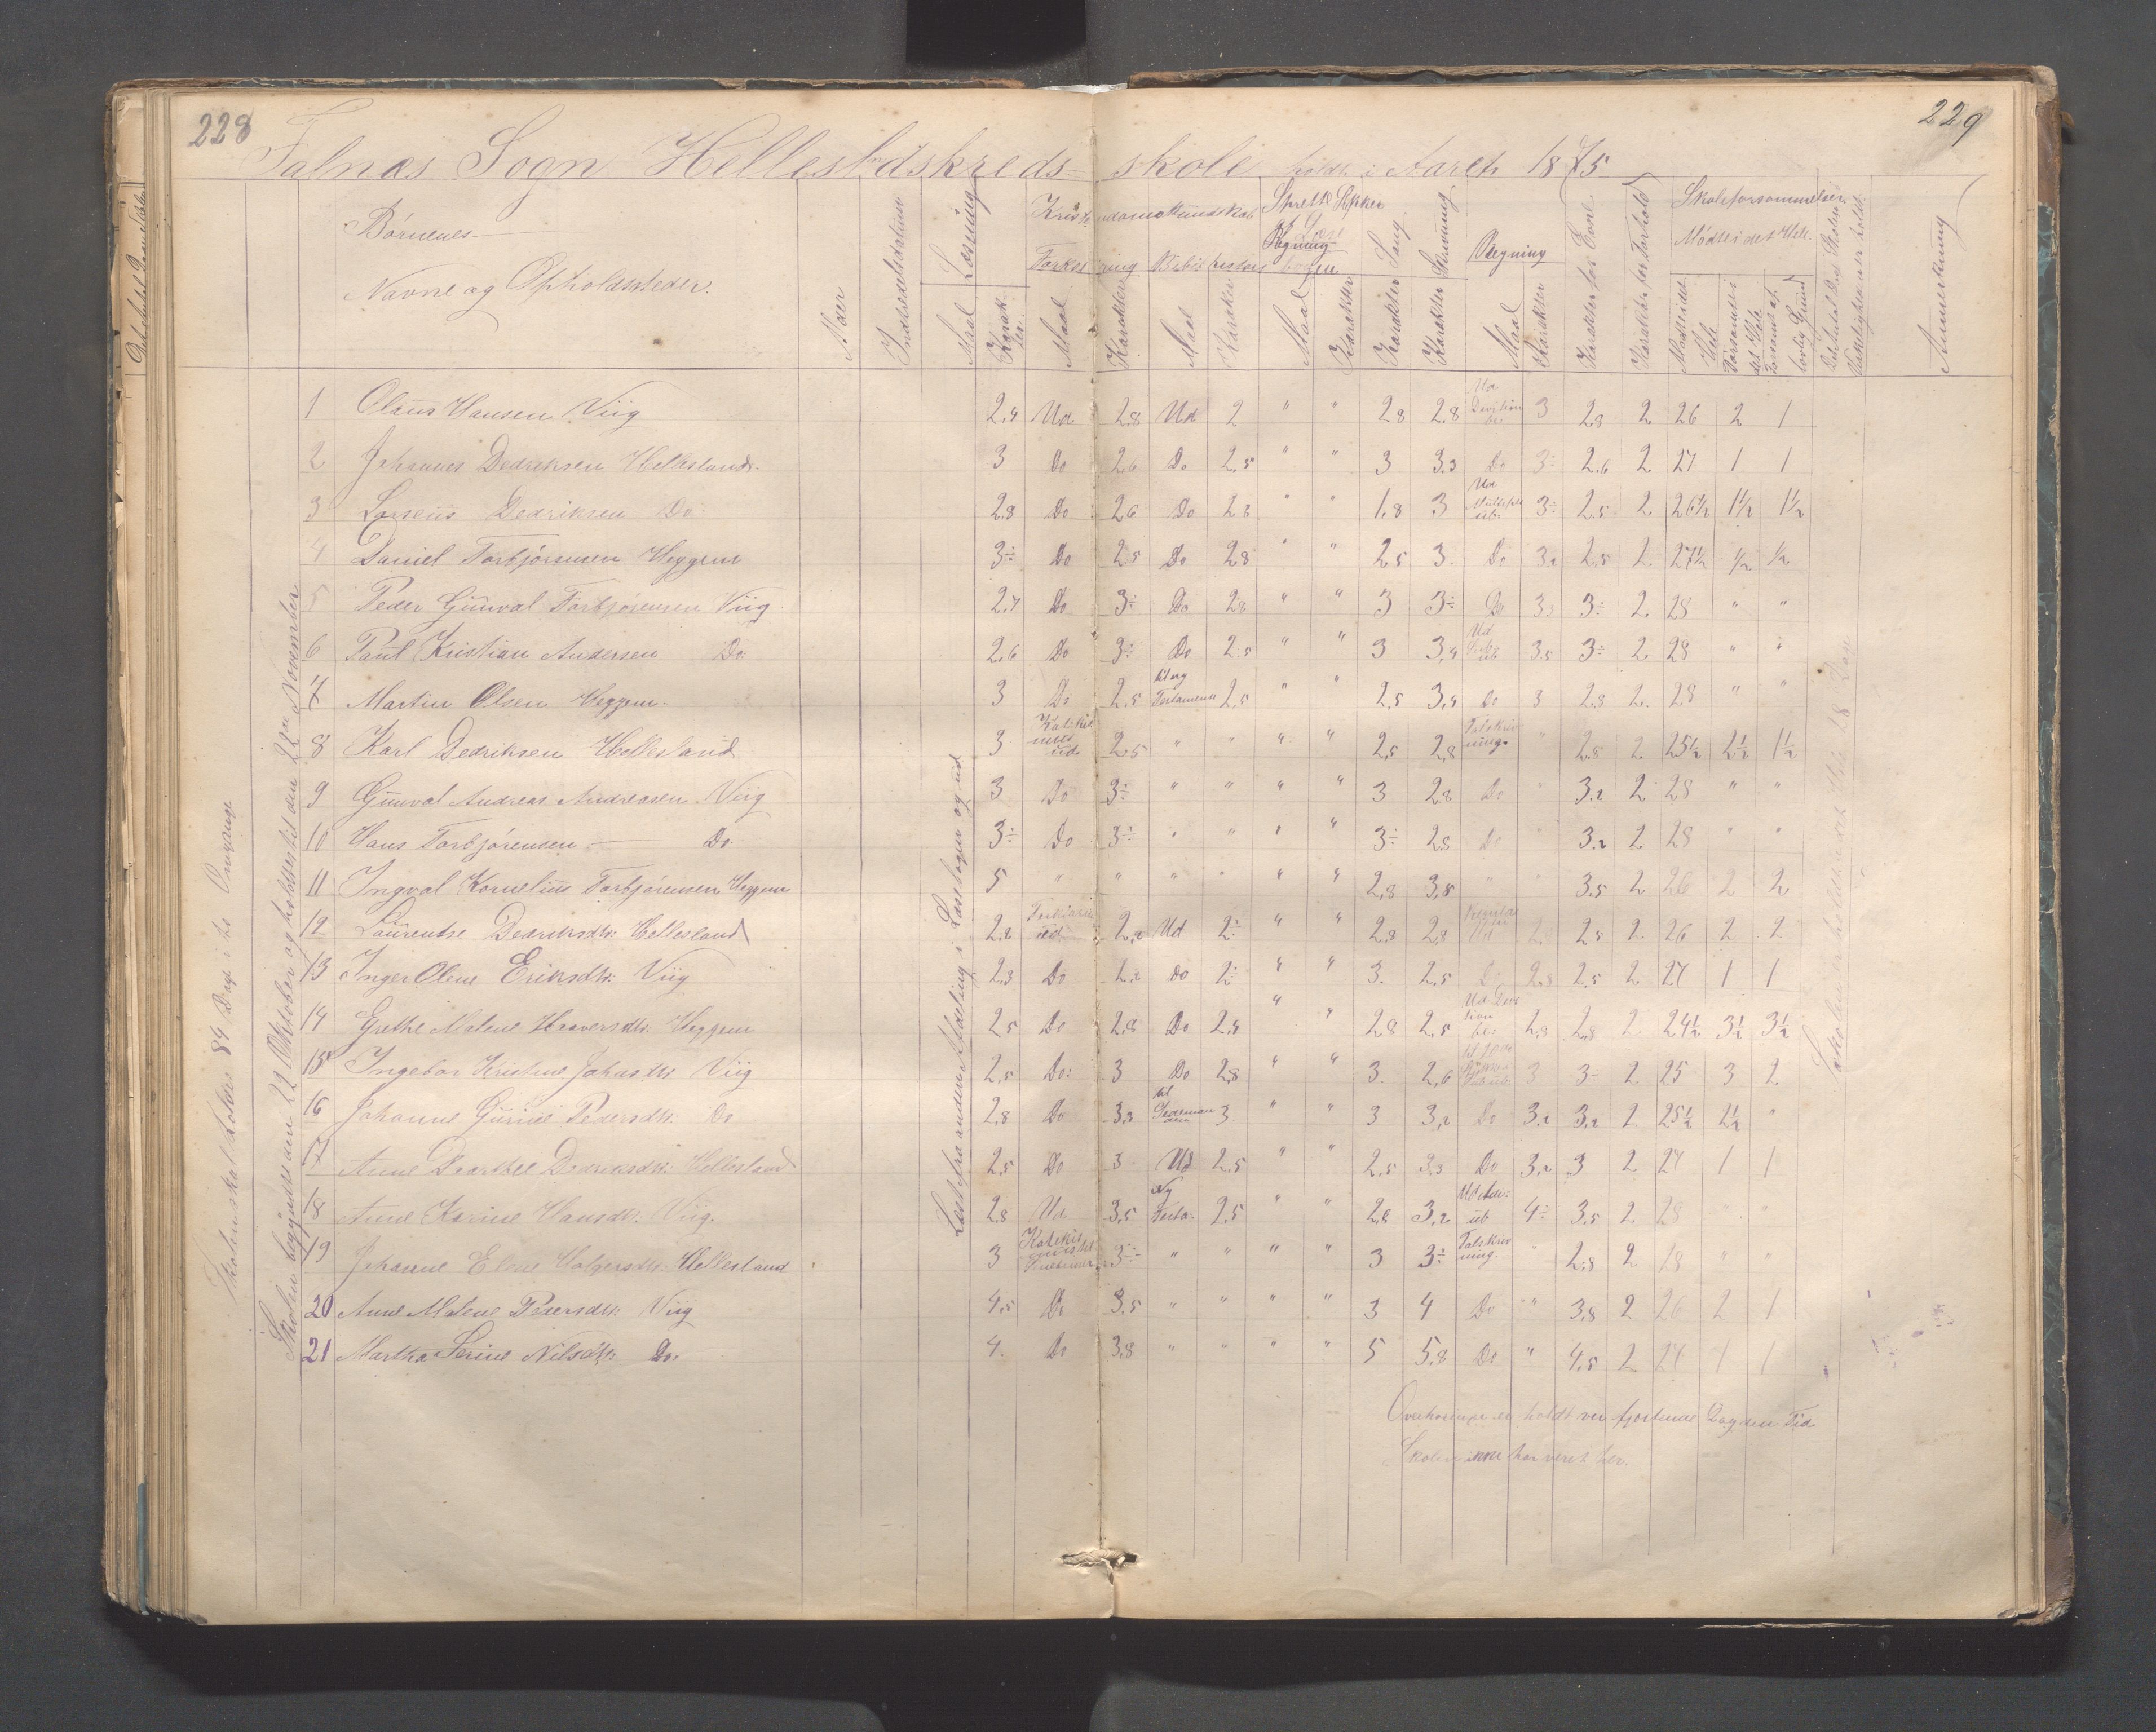 228
229
Falnæs Sogn Helleslandskreds- skole holdt i Aaret 1875
Børnenes
Navne og Opholdssteder.
Alder
Indtrædelsesdatum
Læsning
Maal
Karakter
Kristendomskundskab
Forklaring
Maal
Karakter
Bibelhistorie
Maal
Karakter
Læsebogen
Maal
Karakter
Sang
Karakter
Skrivning
Karakter
Regning
Maal
Karakter
Karakter for Evne
Karakter for Forhold
Skoleforsømmelser.
Mødte i det Hele
Forsømte i det Hele
Forsømt af lovlig Grund
Anmerkning
Skolen skal holdes 84 Dage i to Omgange
Skolen begyndte den 22 Oktober og holdtes til den 22de November
Læst fra anden Afdeling i Læsebogen og ud
1 Olaus Hansen Viig 2,4 Ud 2,8 Ud 2 " " 2,8 2,8 Ud Division 3 2,8 2 26 2 1
2 Johannes Dedriksen Hellesland. 3 Do 2,6 Do 2,5 " " 3 3,3 Do 3÷ 2,6 2 27 1 1
3 Dedriksen Do 2,8 Do 2,6 Do 2,8 " " 1,8 3 Ud 3÷ 2,5 2 26½ 1½ 1½
4 Daniel Torbjørnsen Heggem 3÷ Do 2,5 Do 2,8 " " 2,5 3 Do 3,2 2,5 2 27½ ½ ½
5 Peder Gunval Torbjørensen Viig 2,7 Do 3÷ Do 2,8 " " 3 3÷ Do 3,3 3÷ 2 28 " "
6 Paul Kristian Andersen Do 2,6 Do 3÷ Do 2,5 " " 3 3,4 Ud 3,5 3÷ 2 28 " "
7 Martin Olsen Heggem. 3 Do 2,5 til ny Testamente 2,5 " " 2,5 3,4 Do 3 2,8 2 28 " "
8 Karl Dedriksen Hellesland 3 ud 2,5 " " " " 2,5 2,8 Talskrivning " 2,8 2 25½ 2½ 1½
9 Gunval Andreas Andreasen Viig 3 Do 3÷ " " " " 3 2,8 Do " 3,2 2 28 " "
10 Hans Torbjørensen Do 3÷ Do 3÷ " " " " 3÷ 2,8 Do " 3,2 2 28 " "
11 Ingval Kornelius Torbjørensen Heggem 5 " " " " " " 2,8 3,8 " " 3,5 2 26 2 2
12 Laurentse Dedriksdtr. Hellesland 2,2 ud 2,2 Ud 2÷ " " 2,8 2,8 Ud 2,8 2,5 2 26 2 2
13 Inger Olene Eriksdtr. Viig 2,3 Do 2,2 Do 2÷ " " 3 2,5 Do 2,8 2,5 2 27 1 1
14 Grethe Malene Haaversdtr. Heggem 2,5 Do 2,8 Do 2,4 " " 2,8 2,5 Ud Division 2,8 2,8 2 24½ 3½ 3½
15 Ingebor Kristine Johasdtr Viig 2,5 Do 3 Do 2,8 " " 3 2,6 3 3÷ 2 25 3 2
16 Johanne Gurine Pedersdtr. Do 2,8 Do 3,3 til 3 " " 3 3,2 Do 3,2 3,2 2 25½ 2½ "
17 Anne Dorthea Dedriksdtr. Hellesland 2,5 Do 3 Ud 2,5 " " 2,5 3,3 Do 3,2 3 2 27 1 1
18 Anne Karine Hansdtr. Viig. 2,8 Ud 3,5 Ny Testa. 2,5 " " 2,8 3,2 Ud 4÷ 3,5 2 28 " "
19 Johanne Elene Holgersdtr. Hellesland 3 3÷ " " " " 3 3÷ Talskrivning. " 2,8 2 28 " "
20 Anne Malene Pedersdtr. Viig 4,5 Do 3,5 " " " " 3 4 Do " 3,8 2 26 2 1
21 Martha Serine Nilsdtr. Do. 4. Do 3,8 " " " " 5 5,8 Do " 4,5 2 27 1 1
Skolen holdt i det Hele 28 Dage
Overhøringe er holdt ver fjortende Dag den Tid
Skolen ikke har veret her.